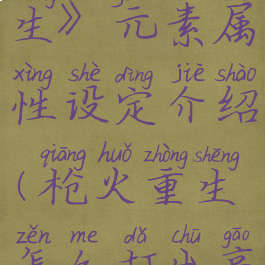 生》元素属
xìng shè dìng jiè shào
性设定介绍
qiāng huǒ zhòng shēng
(枪火重生
zěn me dǎ chū gāo
怎么打出高